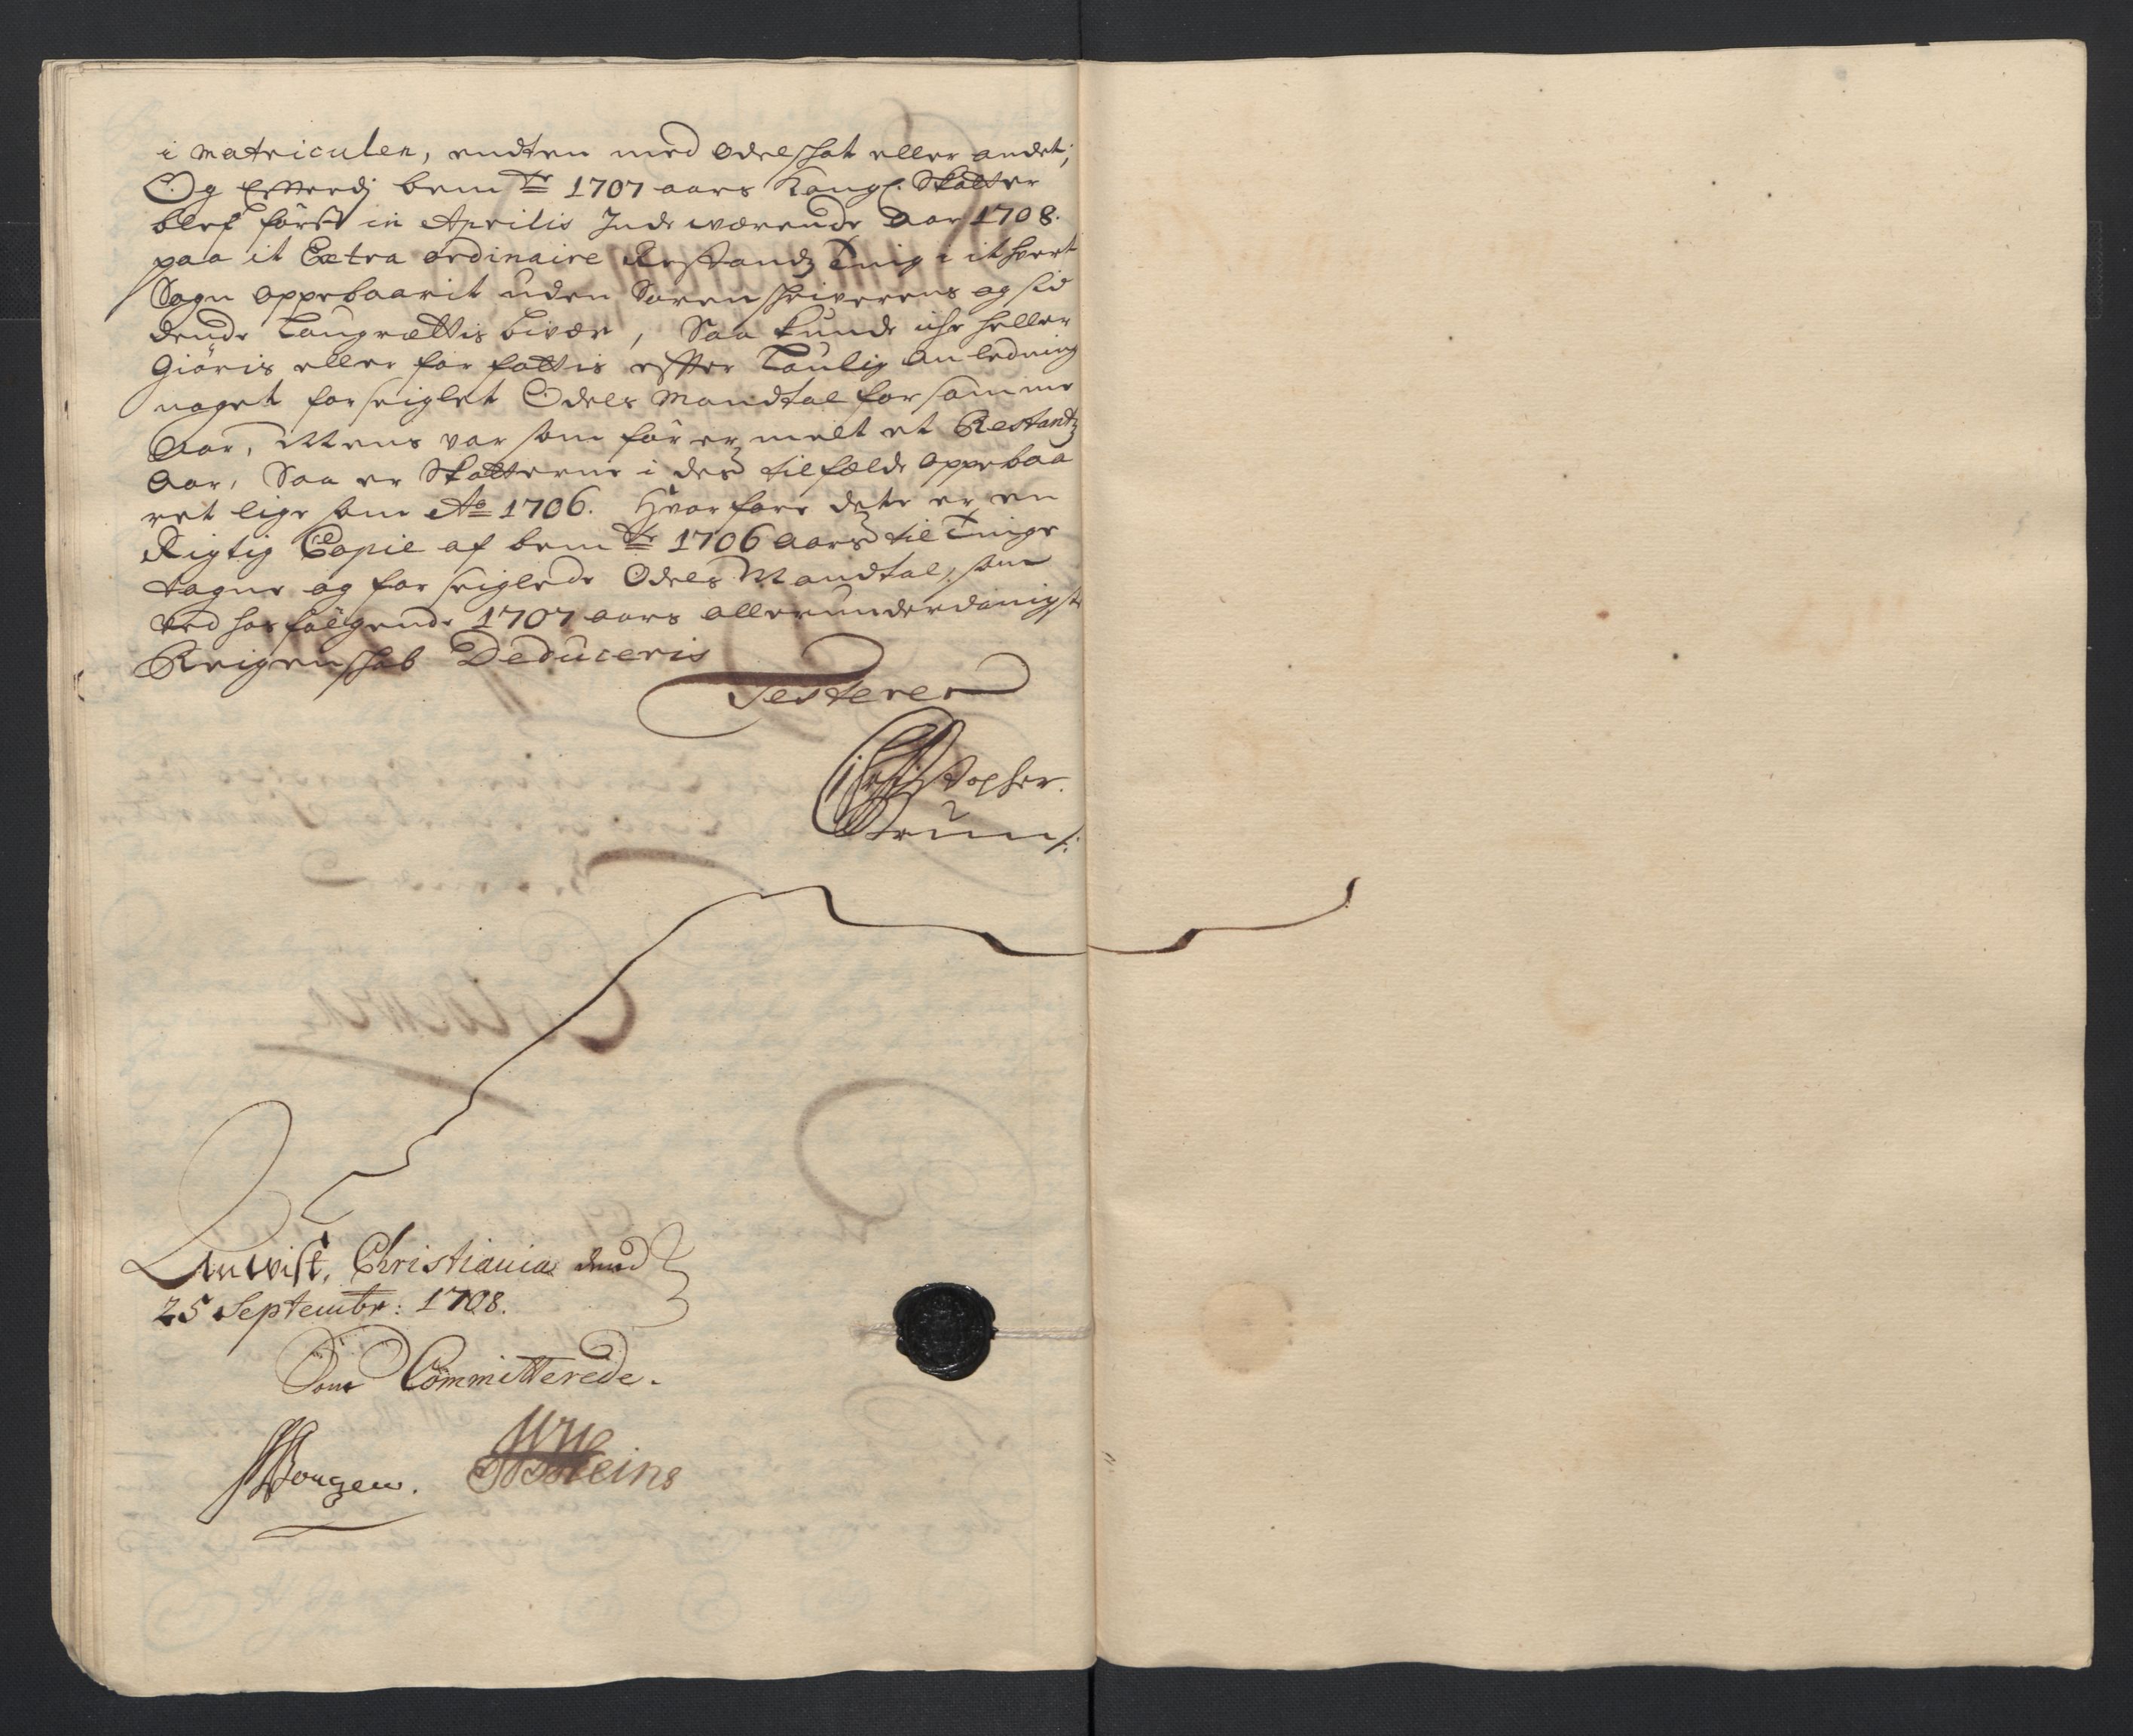 i matriculen, endten med odelschat eller andet;
Og Efterdj bem.te 1707 aars Kongl. Skatter
blef först in Aprilis Inde værende Aar 1708.
paa it Extra ordinaire Restandz Ting i it hvert
Sogn oppebaarit uden Sorenschriverens og sid
dende Laugrættis bivær, Saa kunde iche heller
Giöris eller for fattis efter Laulig Anledning
noget forseiglet Odels Mandtal for samme
Aar, Mens var som för er melt et Restantz
Aar, Saa er Skatterne i des tilfælde oppebaa
ret lige som Ao 1706. Hvorfore dete er en
Rigtig Copie af bem.te 1706 aars til Tinge
tagne og for seiglede Odels Mandtal, som
ved hos fölgende 1707 aars allerunderdanigste
Reigenschab Deduceris
Testerer
Christopher
Brun
Anvist, Christiania dend
25 Septembr: 1708.
Som Committerede.
Borgen.